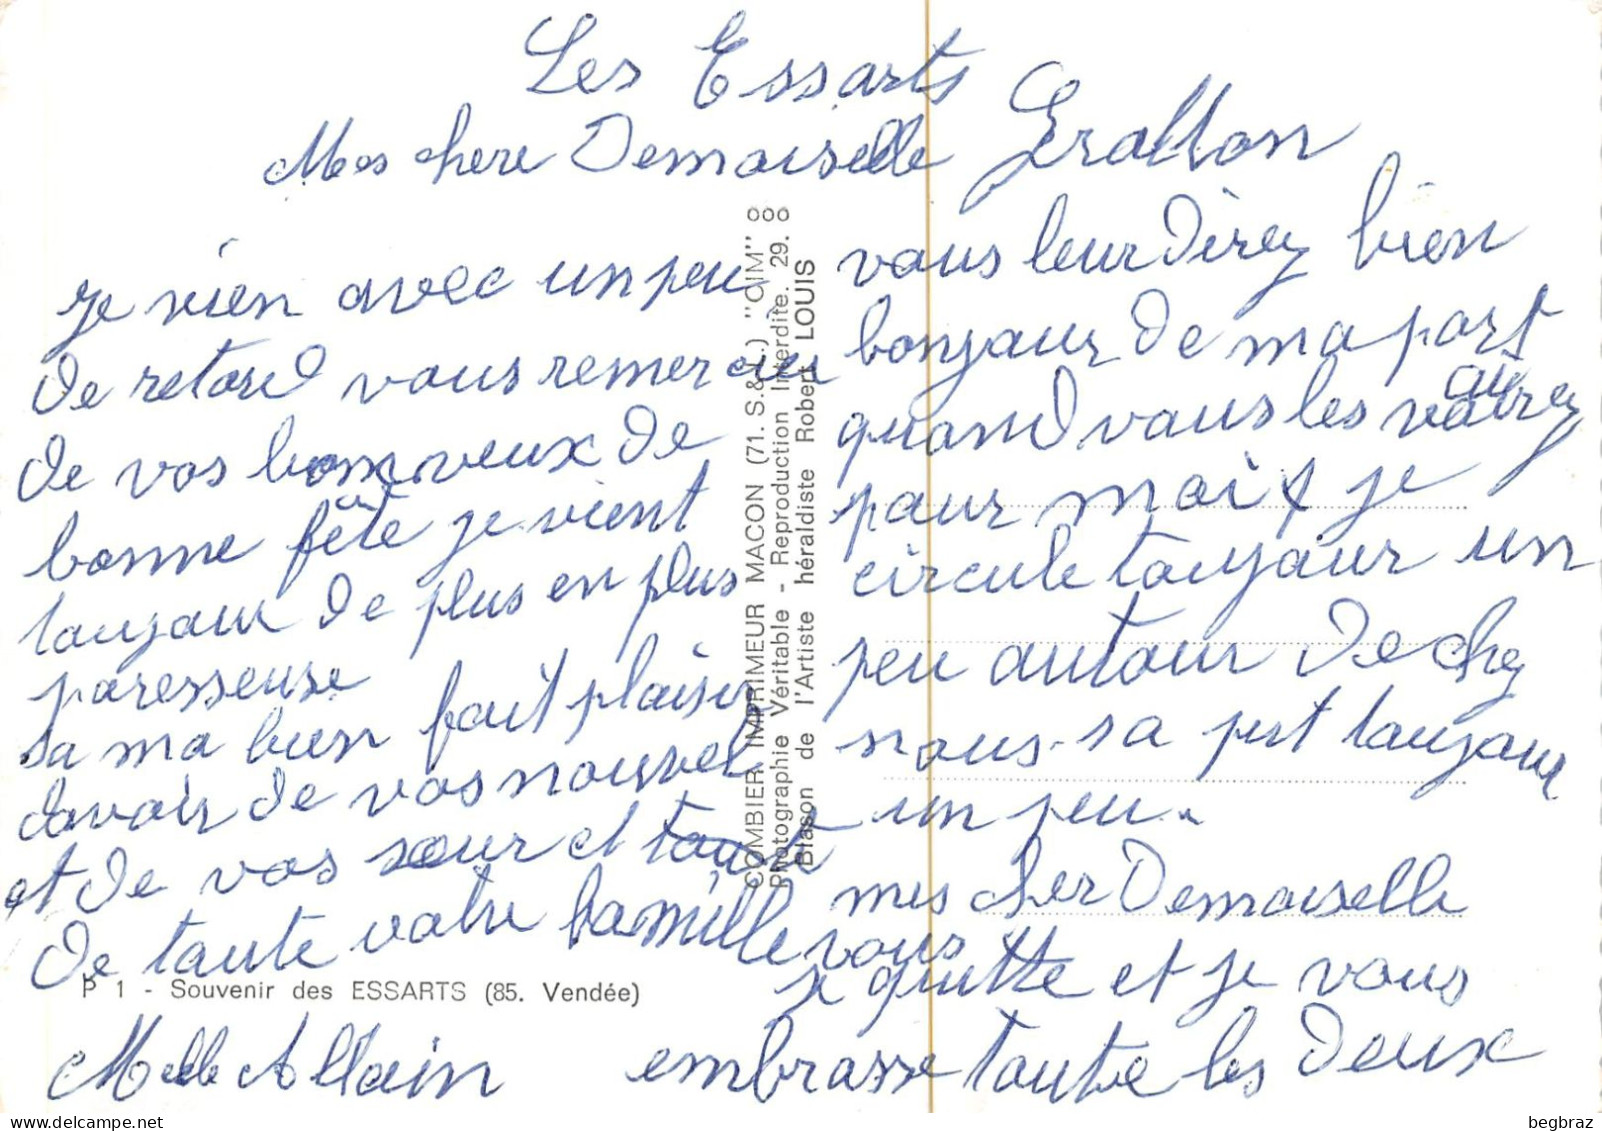 Les Essarts
Mes chere Demoiselle Grallon
je vien avec un peu
de retard vous remercies
de vos bonn veux de
bonne fête je vient
toujour de plus en plus
paresseuse
sa ma bien fait plaisir
davoir de vos nouvel
et de vos sœur et toute
de toute votre famille
Melle Allain
vous leur direz bien
bonjour de ma part
quand vous les vairez
au
pour moi je
circule toujour un
peu autour de chez
nous. sa fest toujour
un peu.
mes cher Demoiselle
vous
je quitte et je vous
embrasse toute les deux
COMBIER IMPRIMEUR MACON (71. S.&L.) "CIM"
Photographie Véritable - Reproduction Interdite. 29.
Blason de l'Artiste héraldiste Robert LOUIS
P 1 - Souvenir des ESSARTS (85. Vendée)
begbraz